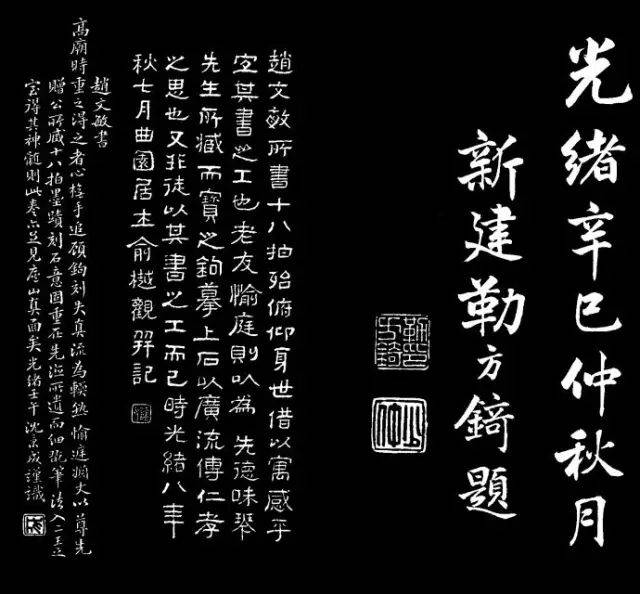 光緒辛巳仲秋月
新建勒方錡題
趙文敏所書十八拍殆俯仰身世借以寓感乎
究其書之工也老友愉庭則以為先德味琴
先生所臧而寶之鉤摹上石以廣流傳仁孝
之思也又非徒以其書之工而已時光緒八年
秋七月曲園居士俞樾觀并記
趙文敏書
高廟時重之得之者心橅手追顧鉤刻失真流為輕鉄愉庭觀夫以尊先
贈公所臧十八拍墨蹟刻石意固重在先澤所遺而細玩筆法八二王之
室得其神髓則此卷亦足見廬山真面矣光緒壬午沈景成謹識